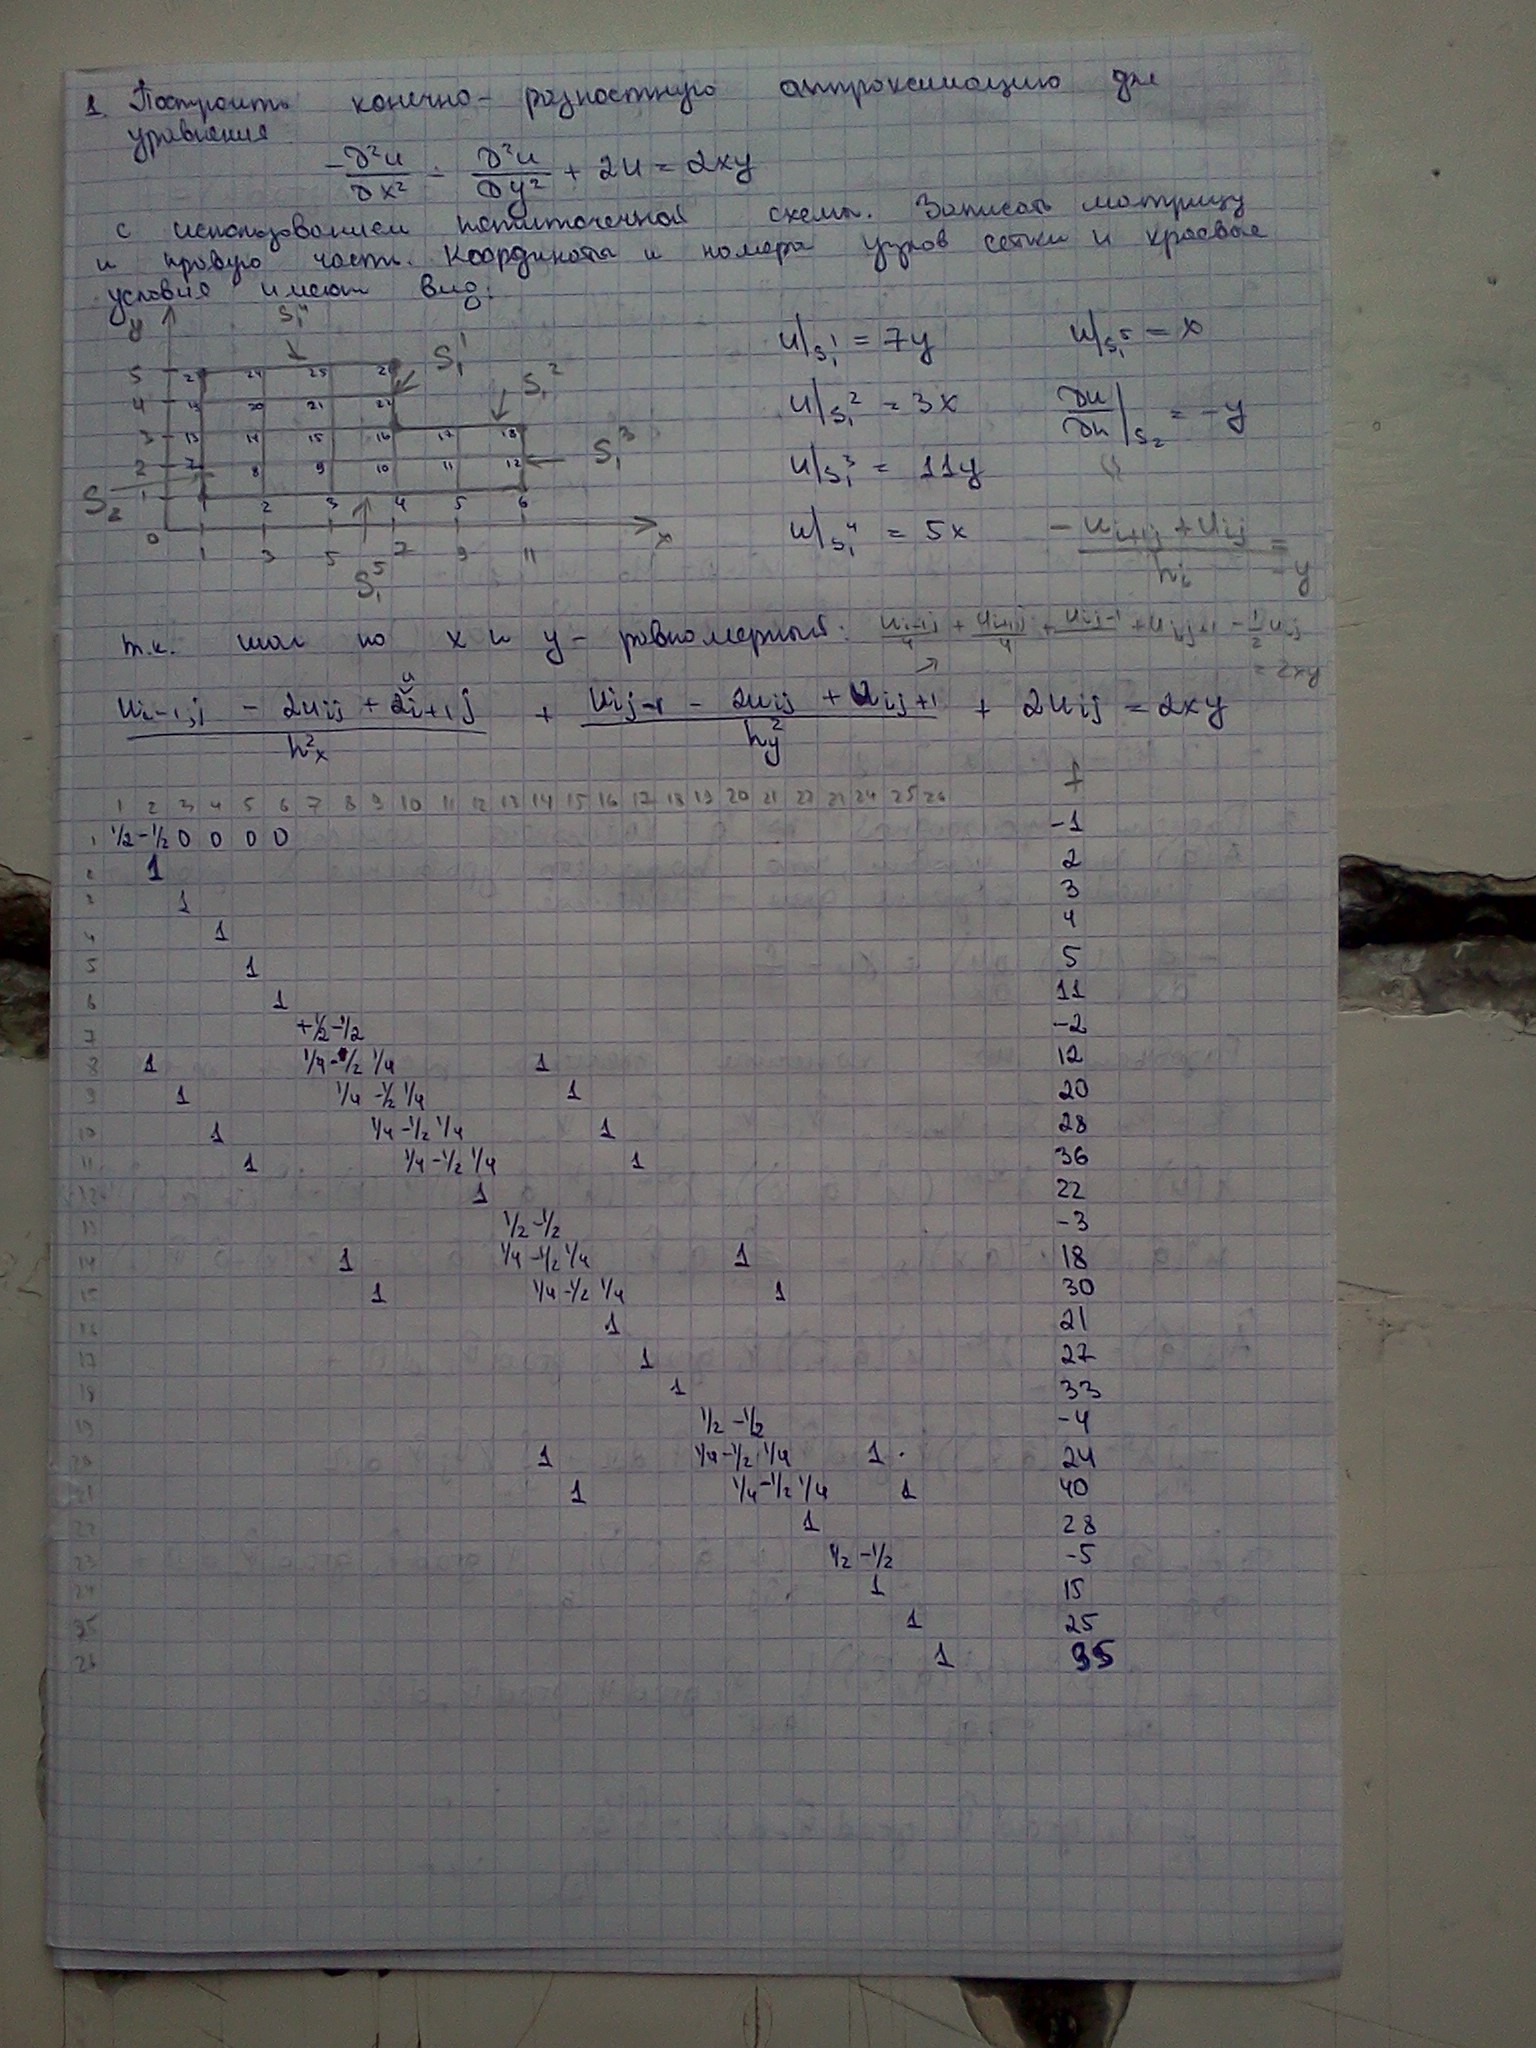 1. Построить конечно-разностную аппроксимацию для
уравнения
-∂²u/∂x² - ∂²u/∂y² + 2u = 2xy
с использованием пятиточечной схемы. Записать матрицу
и правую часть. Координаты и номера узлов сетки и краевые
условия имеют вид:
y S₁⁴
5 23 24 25 26 S₁¹
4 19 20 21 22 S₁²
3 13 14 15 16 17 18
2 7 8 9 10 11 12 S₁³
S₂ 1 1 2 3 4 5 6
0 1 3 5 7 9 11 x
S₁⁵
u|S₁¹ = 7y u|S₁⁵ = x
u|S₁² = 3x ∂u/∂n|S₂ = -y
u|S₁³ = 11y
u|S₁⁴ = 5x (-u i+1j + u ij)/h i = -y
т.к. шаг по x и y - равномерный: u i-1j/4 + u i+1j/4 + u ij-1 + u ij+1 - 1/2 u ij
= 2xy
(u i-1,j - 2u ij + 2 u i+1j)/h²x + (u ij-1 - 2u ij + u ij+1)/h²y + 2u ij = 2xy
1 2 3 4 5 6 7 8 9 10 11 12 13 14 15 16 17 18 19 20 21 22 23 24 25 26 f
1 1/2 -1/2 0 0 0 0 -1
2 1 2
3 1 3
4 1 4
5 1 5
6 1 11
7 +1/2 -1/2 -2
8 1 1/4 -1/2 1/4 1 12
9 1 1/4 -1/2 1/4 1 20
10 1 1/4 -1/2 1/4 1 28
11 1 1/4 -1/2 1/4 1 36
12 1 22
13 1/2 -1/2 -3
14 1 1/4 -1/2 1/4 1 18
15 1 1/4 -1/2 1/4 1 30
16 1 21
17 1 27
18 1 33
19 1/2 -1/2 -4
20 1 1/4 -1/2 1/4 1 24
21 1 1/4 -1/2 1/4 1 40
22 1 28
23 1/2 -1/2 -5
24 1 15
25 1 25
26 1 35